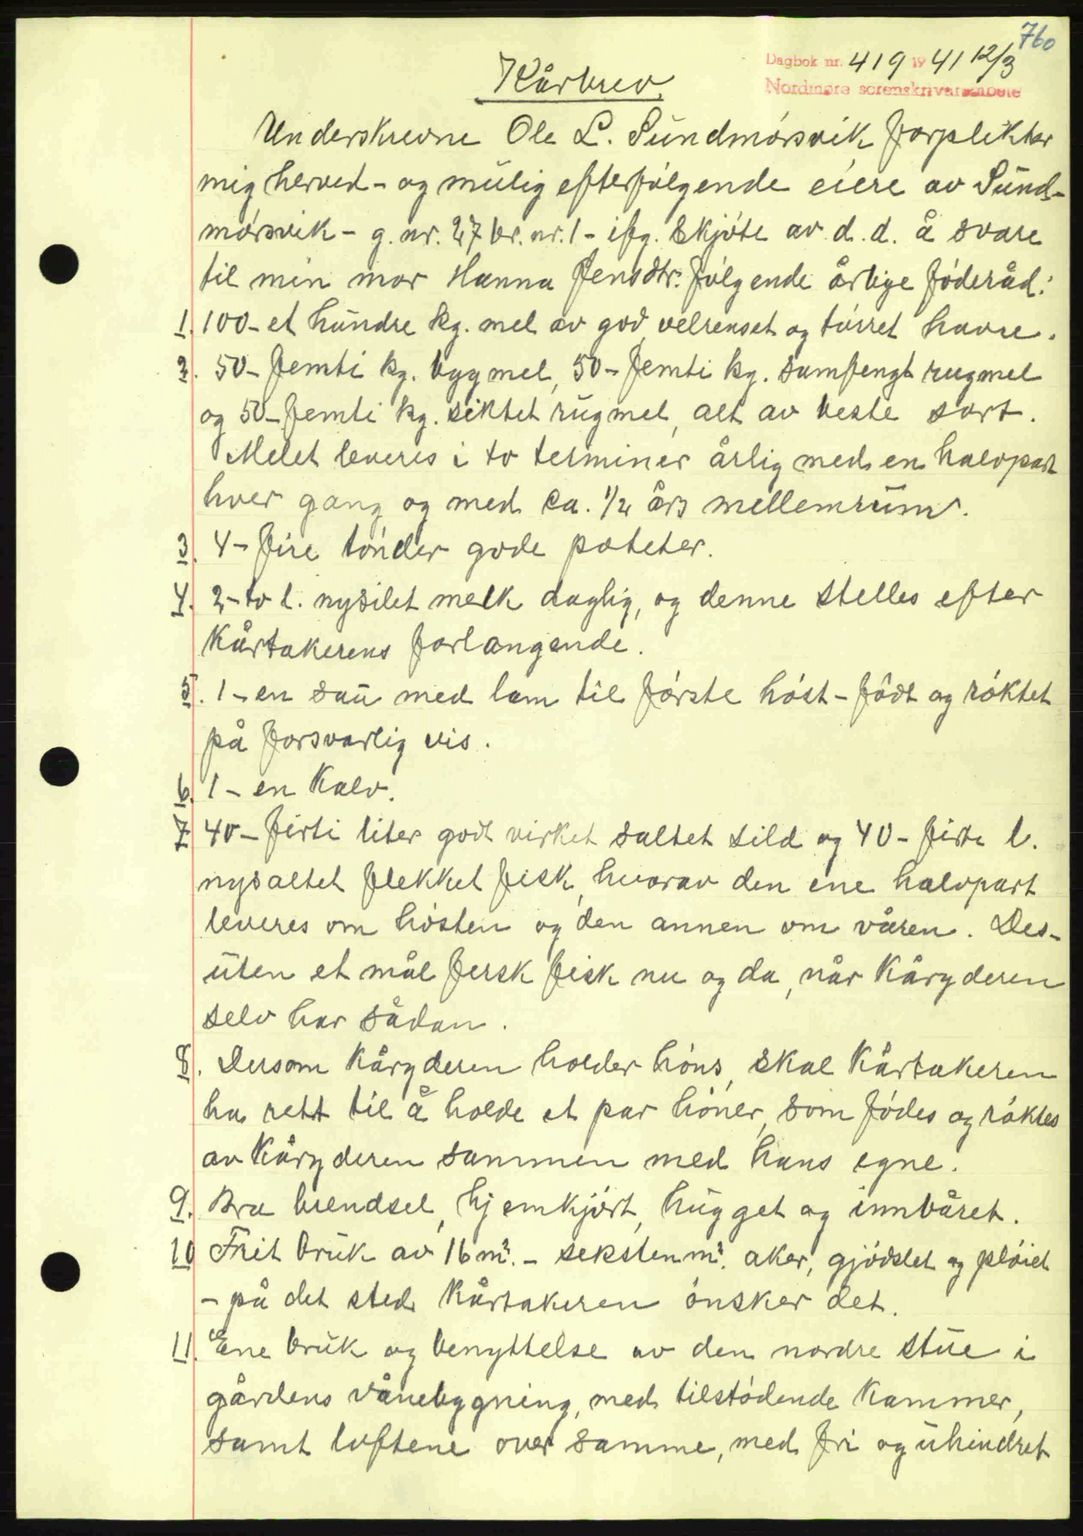 760
Dagbok nr. 419 1941 12/3
Nordmøre sorenskriverembete
Kårbrev.
Underskrevne Ole L. Sundmørsvik forplikter
mig herved - og mulig efterfølgende eiere av Sund-
mørsvik - g. nr. 27 br. nr. 1 - ifg. Skjøte av d. d. å svare
til min mor Hanna Jensdtr. følgende årlige føderåd:
1. 100 - et hundre kg. mel av god, velrenset og tørret havre.
2. 50 - femti kg. bygmel, 50 - femti kg. samfengt rugmel
og 50 - femti kg. siktet rugmel, alt av beste sort.
Melet leveres i to terminer årlig med en halvpart
hver gang og med ca. 1/2 års mellemrum.
3. 4 - fire tønder gode poteter.
4. 2 - to l. nysilet melk daglig, og denne stelles efter
Kårtakerens forlangende.
5. 1 - en sau med lam til første høst - født og røktet
på forsvarlig vis.
6. 1 - en kalv.
7. 40 - førti liter godt virket saltet sild og 40 - førti l.
nysaltet flekket fisk, hvorav den ene halvpart
leveres om høsten og den annen om våren. Des-
uten et mål fersk fisk nu og da, når Kåryderen
selv har sådan.
8. Dersom Kåryderen holder høns, skal Kårtakeren
ha rett til å holde et par høner, som fødes og røktes
av Kåryderen sammen med hans egne.
9. Bra brendsel, hjemkjørt, hugget og innbåret.
10 Frit bruk av 16 m². - seksten m². aker, gjødslet og pløiet
- på det sted Kårtakeren ønsker det.
11. Ene bruk og benyttelse av den nordre stue i
gårdens vånebygning, med tilstødende kammer,
samt loftene over samme, med fri og uhindret